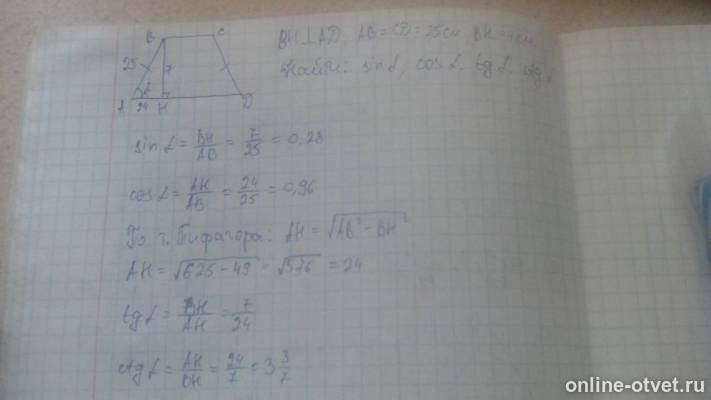 B C
25 7
α
A 24 H D
BH⊥AD, AB=CD=25см, BH=7см
Найти: sin α, cos α, tg α, ctg α
sin α = BH/AB = 7/25 = 0,28
cos α = AH/AB = 24/25 = 0,96
По т. Пифагора: AH = √(AB² - BH²)
AH = √(625 - 49) = √576 = 24
tg α = BH/AH = 7/24
ctg α = AH/BH = 24/7 = 3 3/7
online-otvet.ru